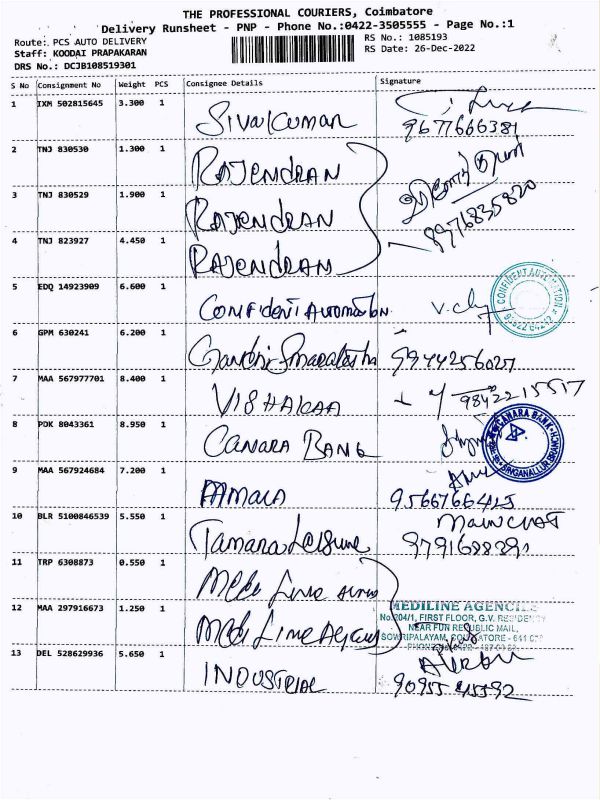 THE PROFESSIONAL COURIERS, Coimbatore
Delivery Runsheet - PNP - Phone No.:0422-3505555 - Page No.:1
Route: PCS AUTO DELIVERY RS No.: 1085193
Staff: KOODAI PRAPAKARAN RS Date: 26-Dec-2022
DRS No.: DCJB108519301
S No Consignment No Weight PCS Consignee Details Signature
1 IXM 502815645 3.300 1 Sivalkumar
9677666381
2 TNJ 830530 1.300 1 RAJENDRAN
3 TNJ 830529 1.900 1 RAJENDRAN
8976835820
4 TNJ 823927 4.450 1 RAJENDRAN
5 EDQ 14923909 6.600 1 Confident Automation
CONFIDENT AUTOMATION
6 GPM 630241 6.200 1 9944256027
7 MAA 567977701 8.400 1 VISHAKAA 9842215517
8 PDK 8043361 8.950 1 CANARA BANK
CANARA BANK
SINGANALLUR BRANCH
9 MAA 567924684 7.200 1
9566766425
10 BLR 5100846539 5.550 1 Tamara Leisure
11 TRP 6308873 0.550 1
12 MAA 297916673 1.250 1
MEDILINE AGENCIES
No.204/1, FIRST FLOOR, G.V. RESIDENCY
NEAR FUN REPUBLIC MAIL,
SOWRIPALAYAM, COIMBATORE - 641 028
13 DEL 528629936 5.650 1 INDUSTRIAL
9095545592